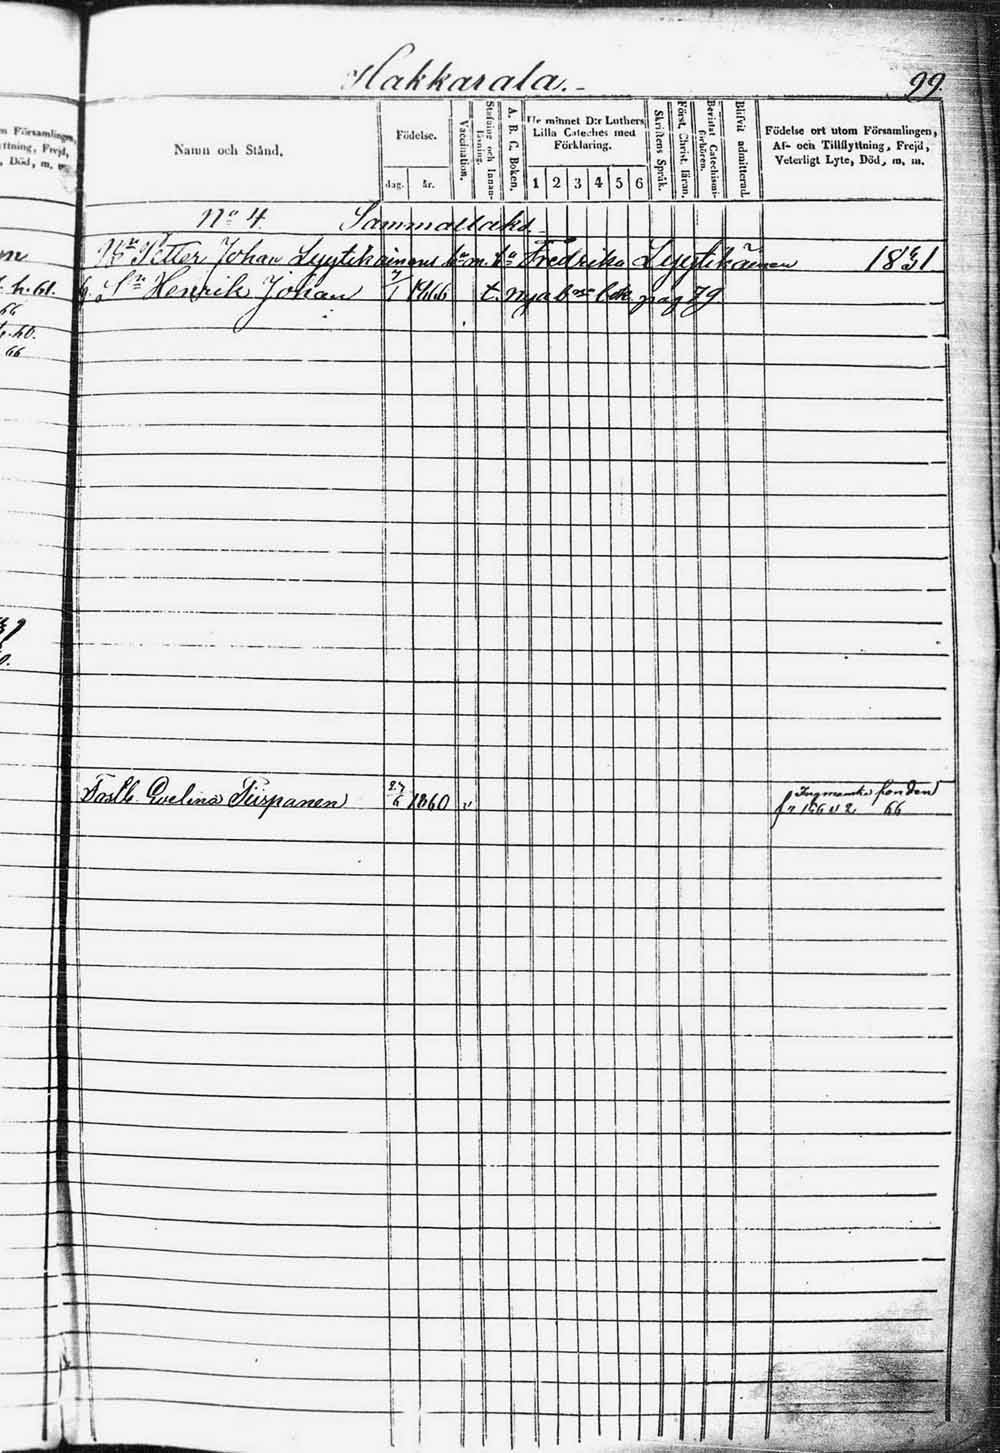 n Församlingen,
ttning, Frejd,
, Död, m. m.
Hakkarala.
99.
Namn och Stånd.
Födelse.
dag.
år.
Vaccination.
Stafning och Innan-läsning.
A. B. C. Boken.
Ur minnet D:r Luthers
Lilla Cateches med
Förklaring.
1 2 3 4 5 6
Skriftens Språk.
Först. Christ. läran.
Bevistat Catechismi-förhören.
Blifvit admitterad.
Födelse ort utom Församlingen,
Af- och Tillflyttning, Frejd,
Veterligt Lyte, Död, m. m.
No 4. Sammallaks
Petter Johan Lyytikäinens Fredrika Lyytikäinen 1831
Sn Henrik Johan 1866 t. nya b pag 79
66
66
Evelina Tiispanen 27/6 1860 "
fonden
66